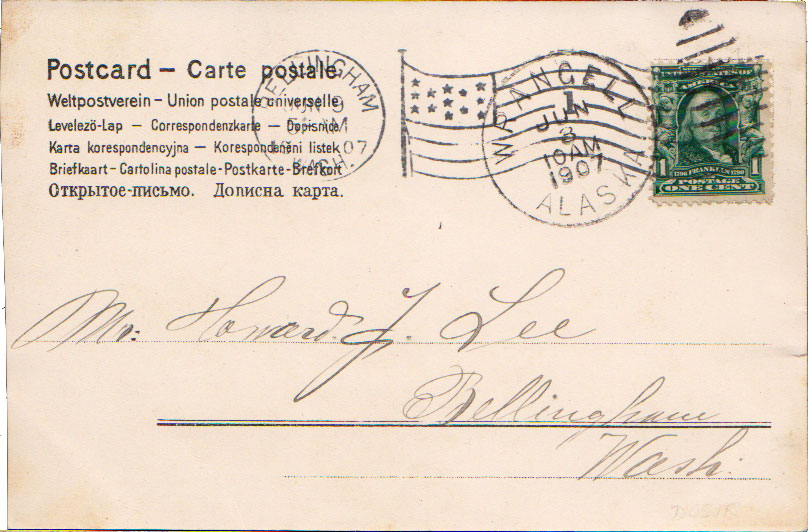 Postcard – Carte postale
Weltpostverein – Union postale universelle
Levelező-Lap – Correspondenzkarte – Dopisnice
Karta korespondencyjna – Korespondenčni listek
Briefkaart – Cartolina postale - Postkarte - Brefkort
Открытое-письмо. Дописна карта.
BELLINGHAM
9
M
07
WASH.
WRANGELL
1
JUN
3
10 AM
1907
ALASKA
1 1790 FRANKLIN 1790 1
POSTAGE
ONE CENT
Mr. Howard. J. Lee
Bellingham
Wash.